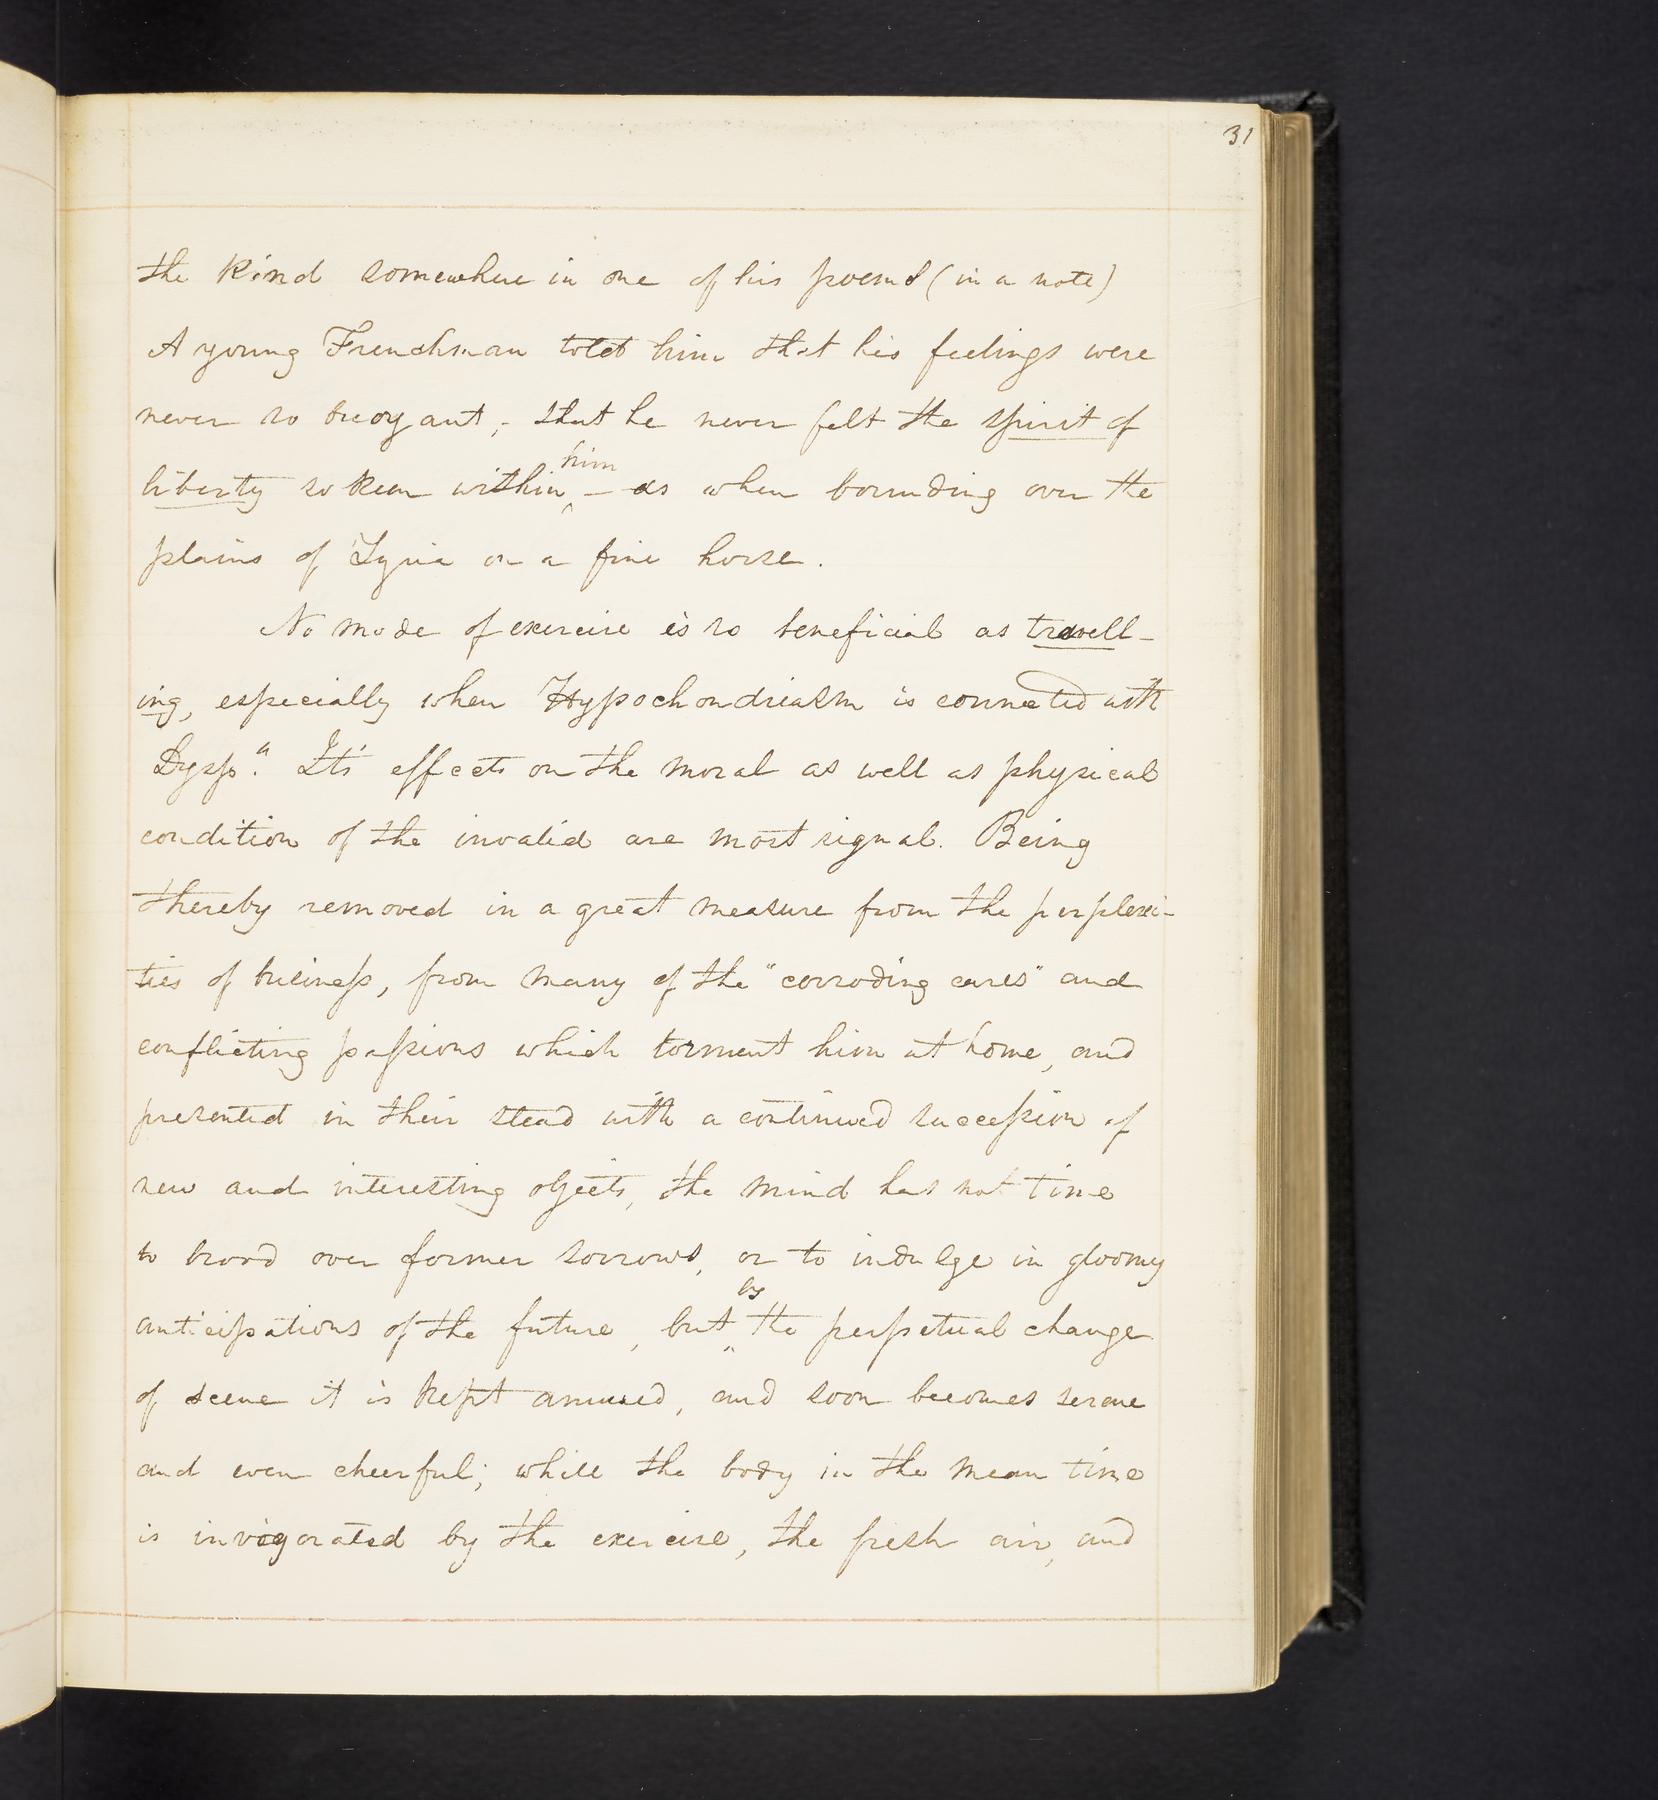 31
the kind somewhere in one of his poems (in a note)
A young Frenchman told him that his feelings were
never so buoyant, - that he never felt the spirit of
him
liberty so keen within ‸ - as when bounding over the
plains of Syria on a fine horse.
No mode of exercise is so beneficial as travell-
ing, especially when Hypochondriasm is connected with
Dysp.ª It's effects on the moral as well as physical
condition of the invalid are most signal. Being
thereby removed in a great measure from the perplexi-
ties of business, from many of the "corroding cares" and
conflicting passions which torment him at home, and
presented in their stead with a continued succession of
new and interesting objects, the mind has not time
to brood over former sorrows, or to indulge in gloomy
by
anticipations of the future, but ‸ the perpetual change
of scene it is kept amused, and soon becomes serene
and even cheerful; while the body in the mean time
is invigorated by the exercise, the fresh air, and